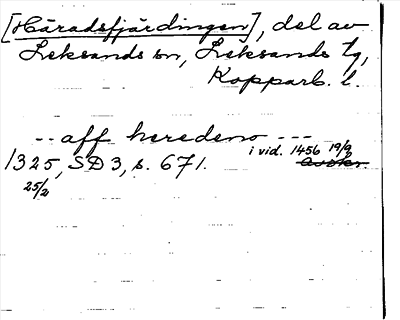 [Häradsfjärdingen], del av
Leksands sn, Leksands tg,
Kopparb. l.
-- aff heredeno ---
1325, SD 3, s. 671. i vid. 1456 19/9
25/2